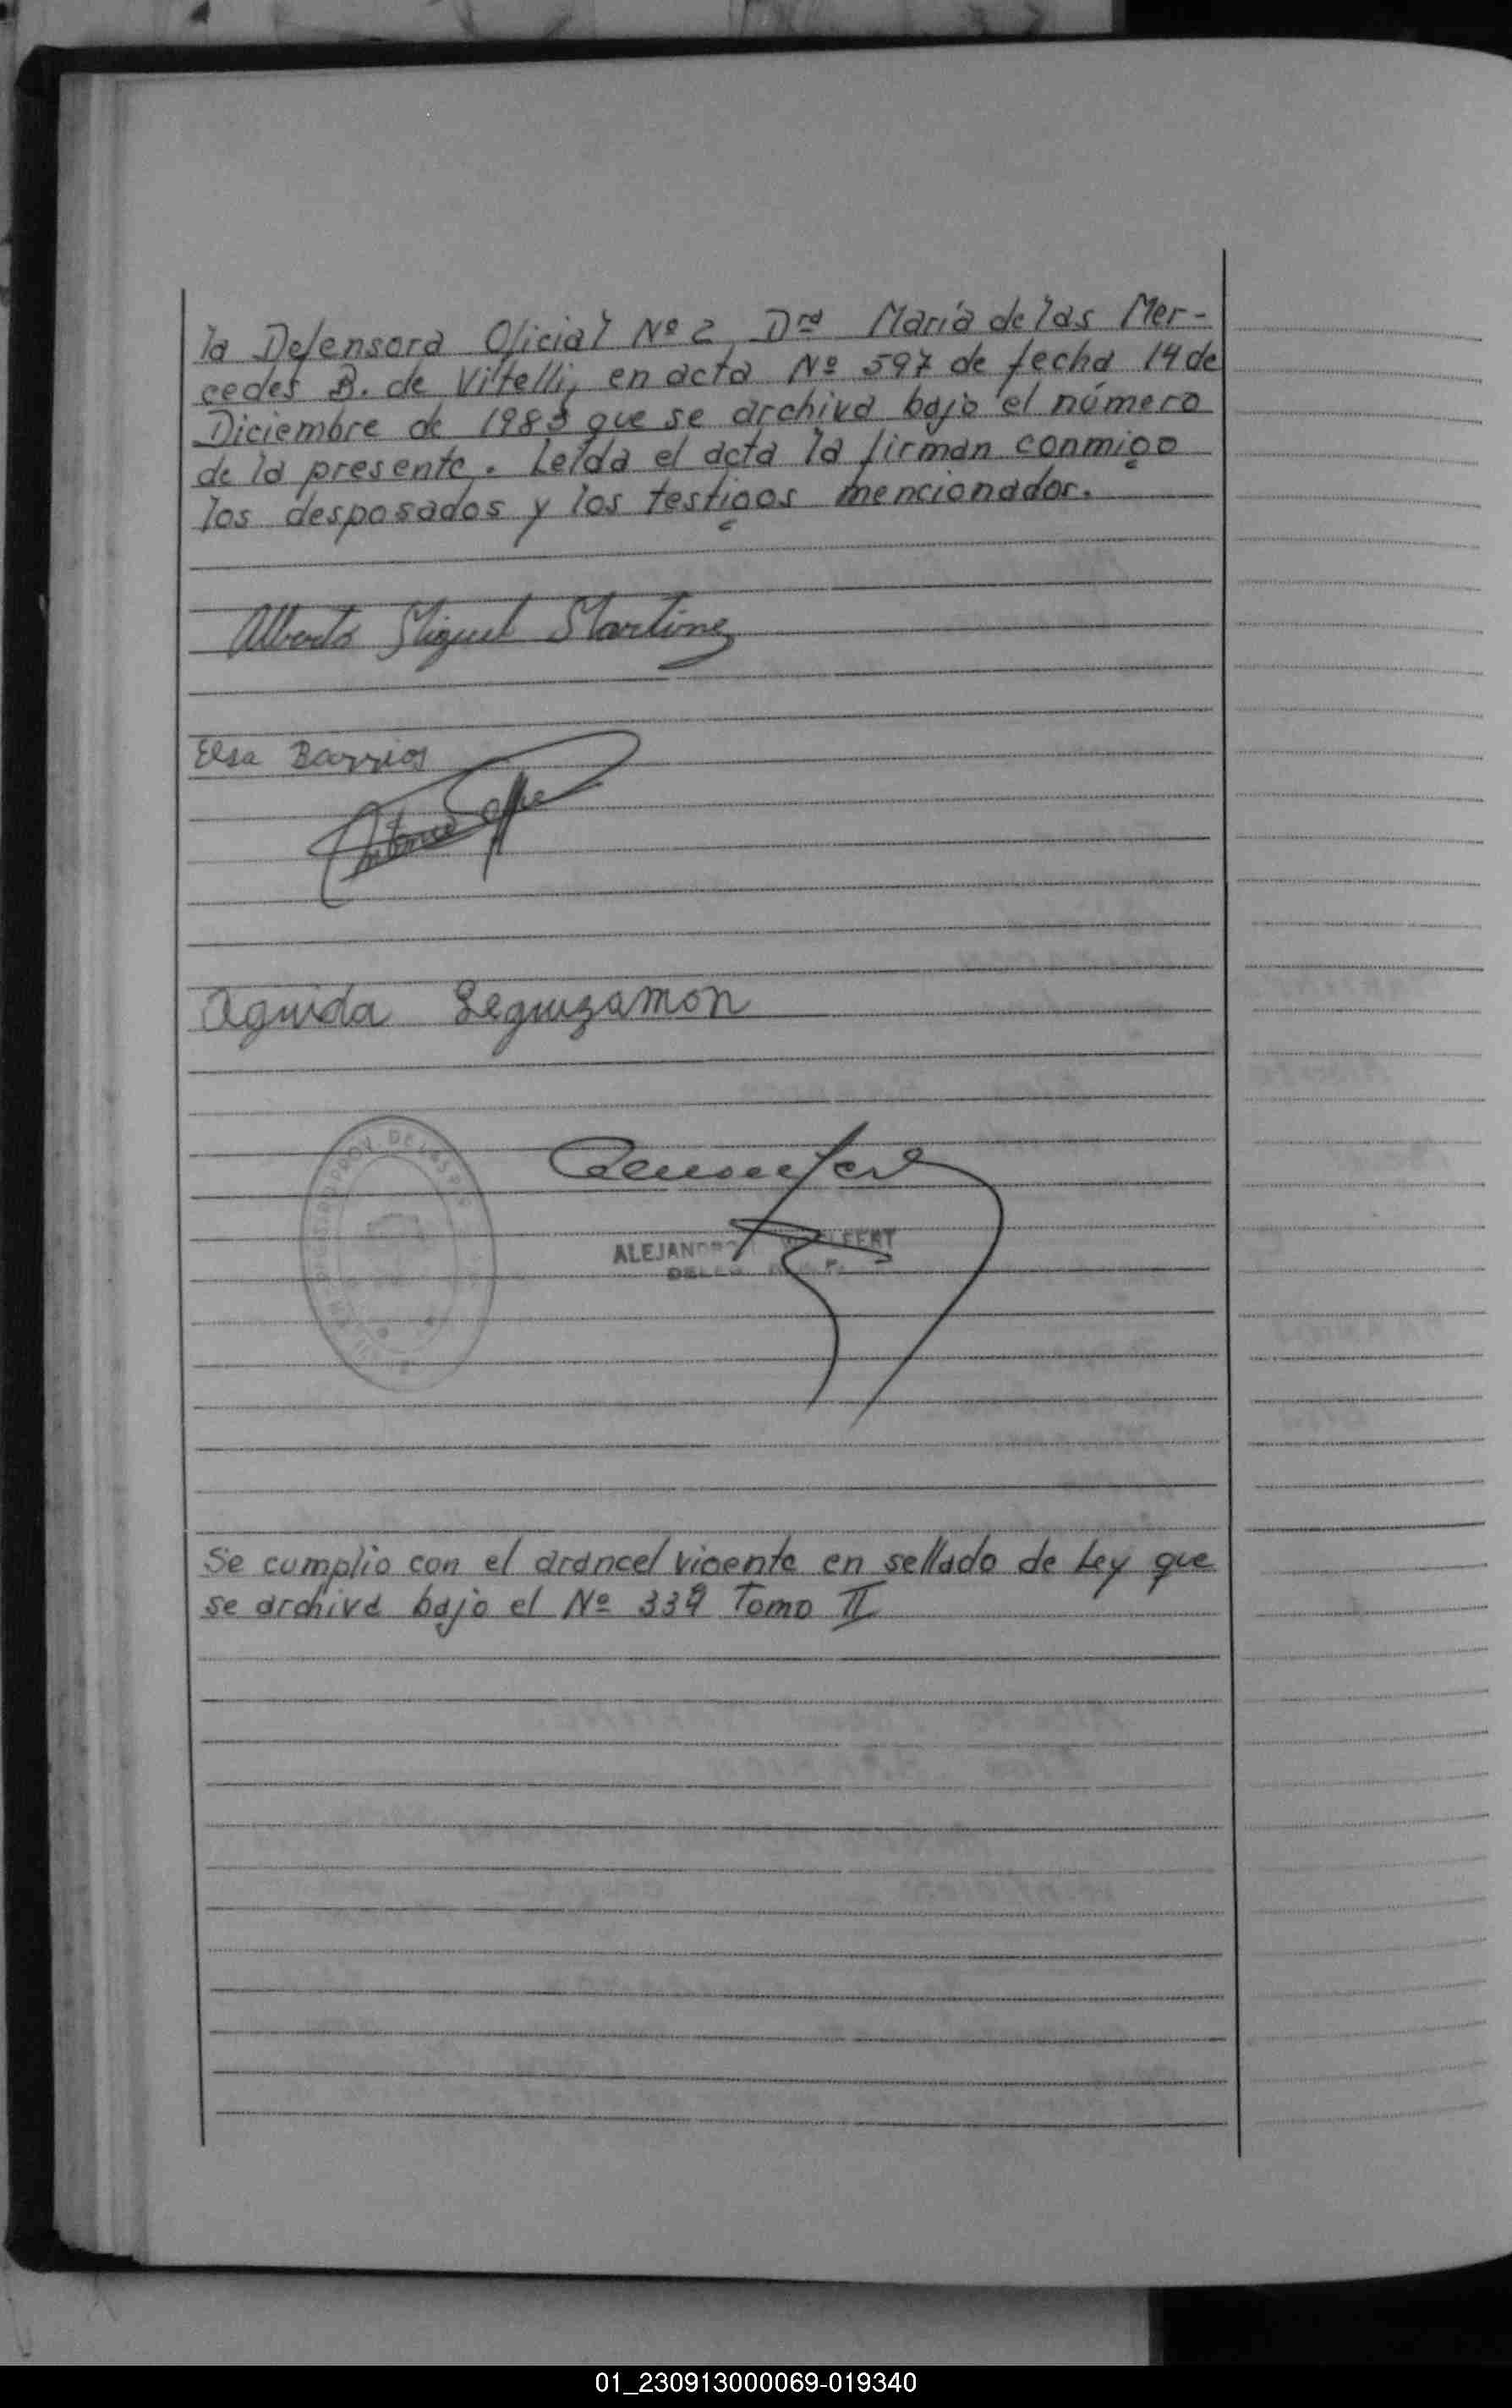 la Defensora Oficial Nº 2, Dra María de las Mer-
cedes B. de Vitelli, en acta Nº 597 de fecha 14 de
Diciembre de 1983 que se archiva bajo el número
de la presente. Leída el acta la firman conmigo
los desposados y los testigos mencionados.
Alberto Miguel Martinez
Elsa Barrios
Antonio
Aguida Leguizamon
ALEJANDRO
Se cumplio con el arancel vigente en sellado de Ley que
se archiva bajo el Nº 339 Tomo II
01_230913000069-019340